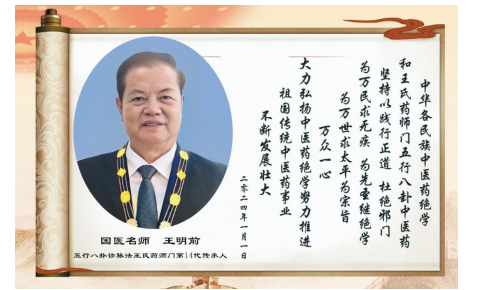 中华各民族中医药绝学
和王氏药师门五行八卦中医药
坚持以践行正道 杜绝邪门
为万民求无疾 为先圣继绝学
为万世求太平为宗旨
万众一心
大力弘扬中医药绝学努力推进
祖国传统中医药事业
不断发展壮大
二零二四年一月一日
国医名师 王明前
五行八卦诊脉法王氏药师门第14代传承人